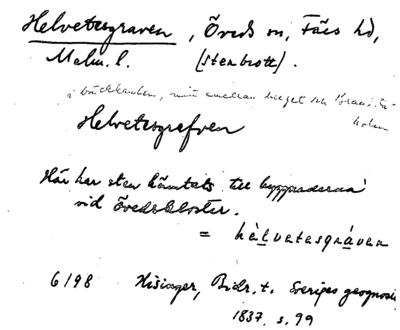 Helvetesgraven, Öveds sn, Färs hd,
Malm. l. (stenbrott).
i bäckkanten, mitt emellan berget och
holm
Helvetesgrafven
Här har sten hämtats till byggnaderna
vid Övedskloster.
= hèlvetesgráven
6198 Hisinger, Bidr. t. Sveriges geognosi
1837, s. 99